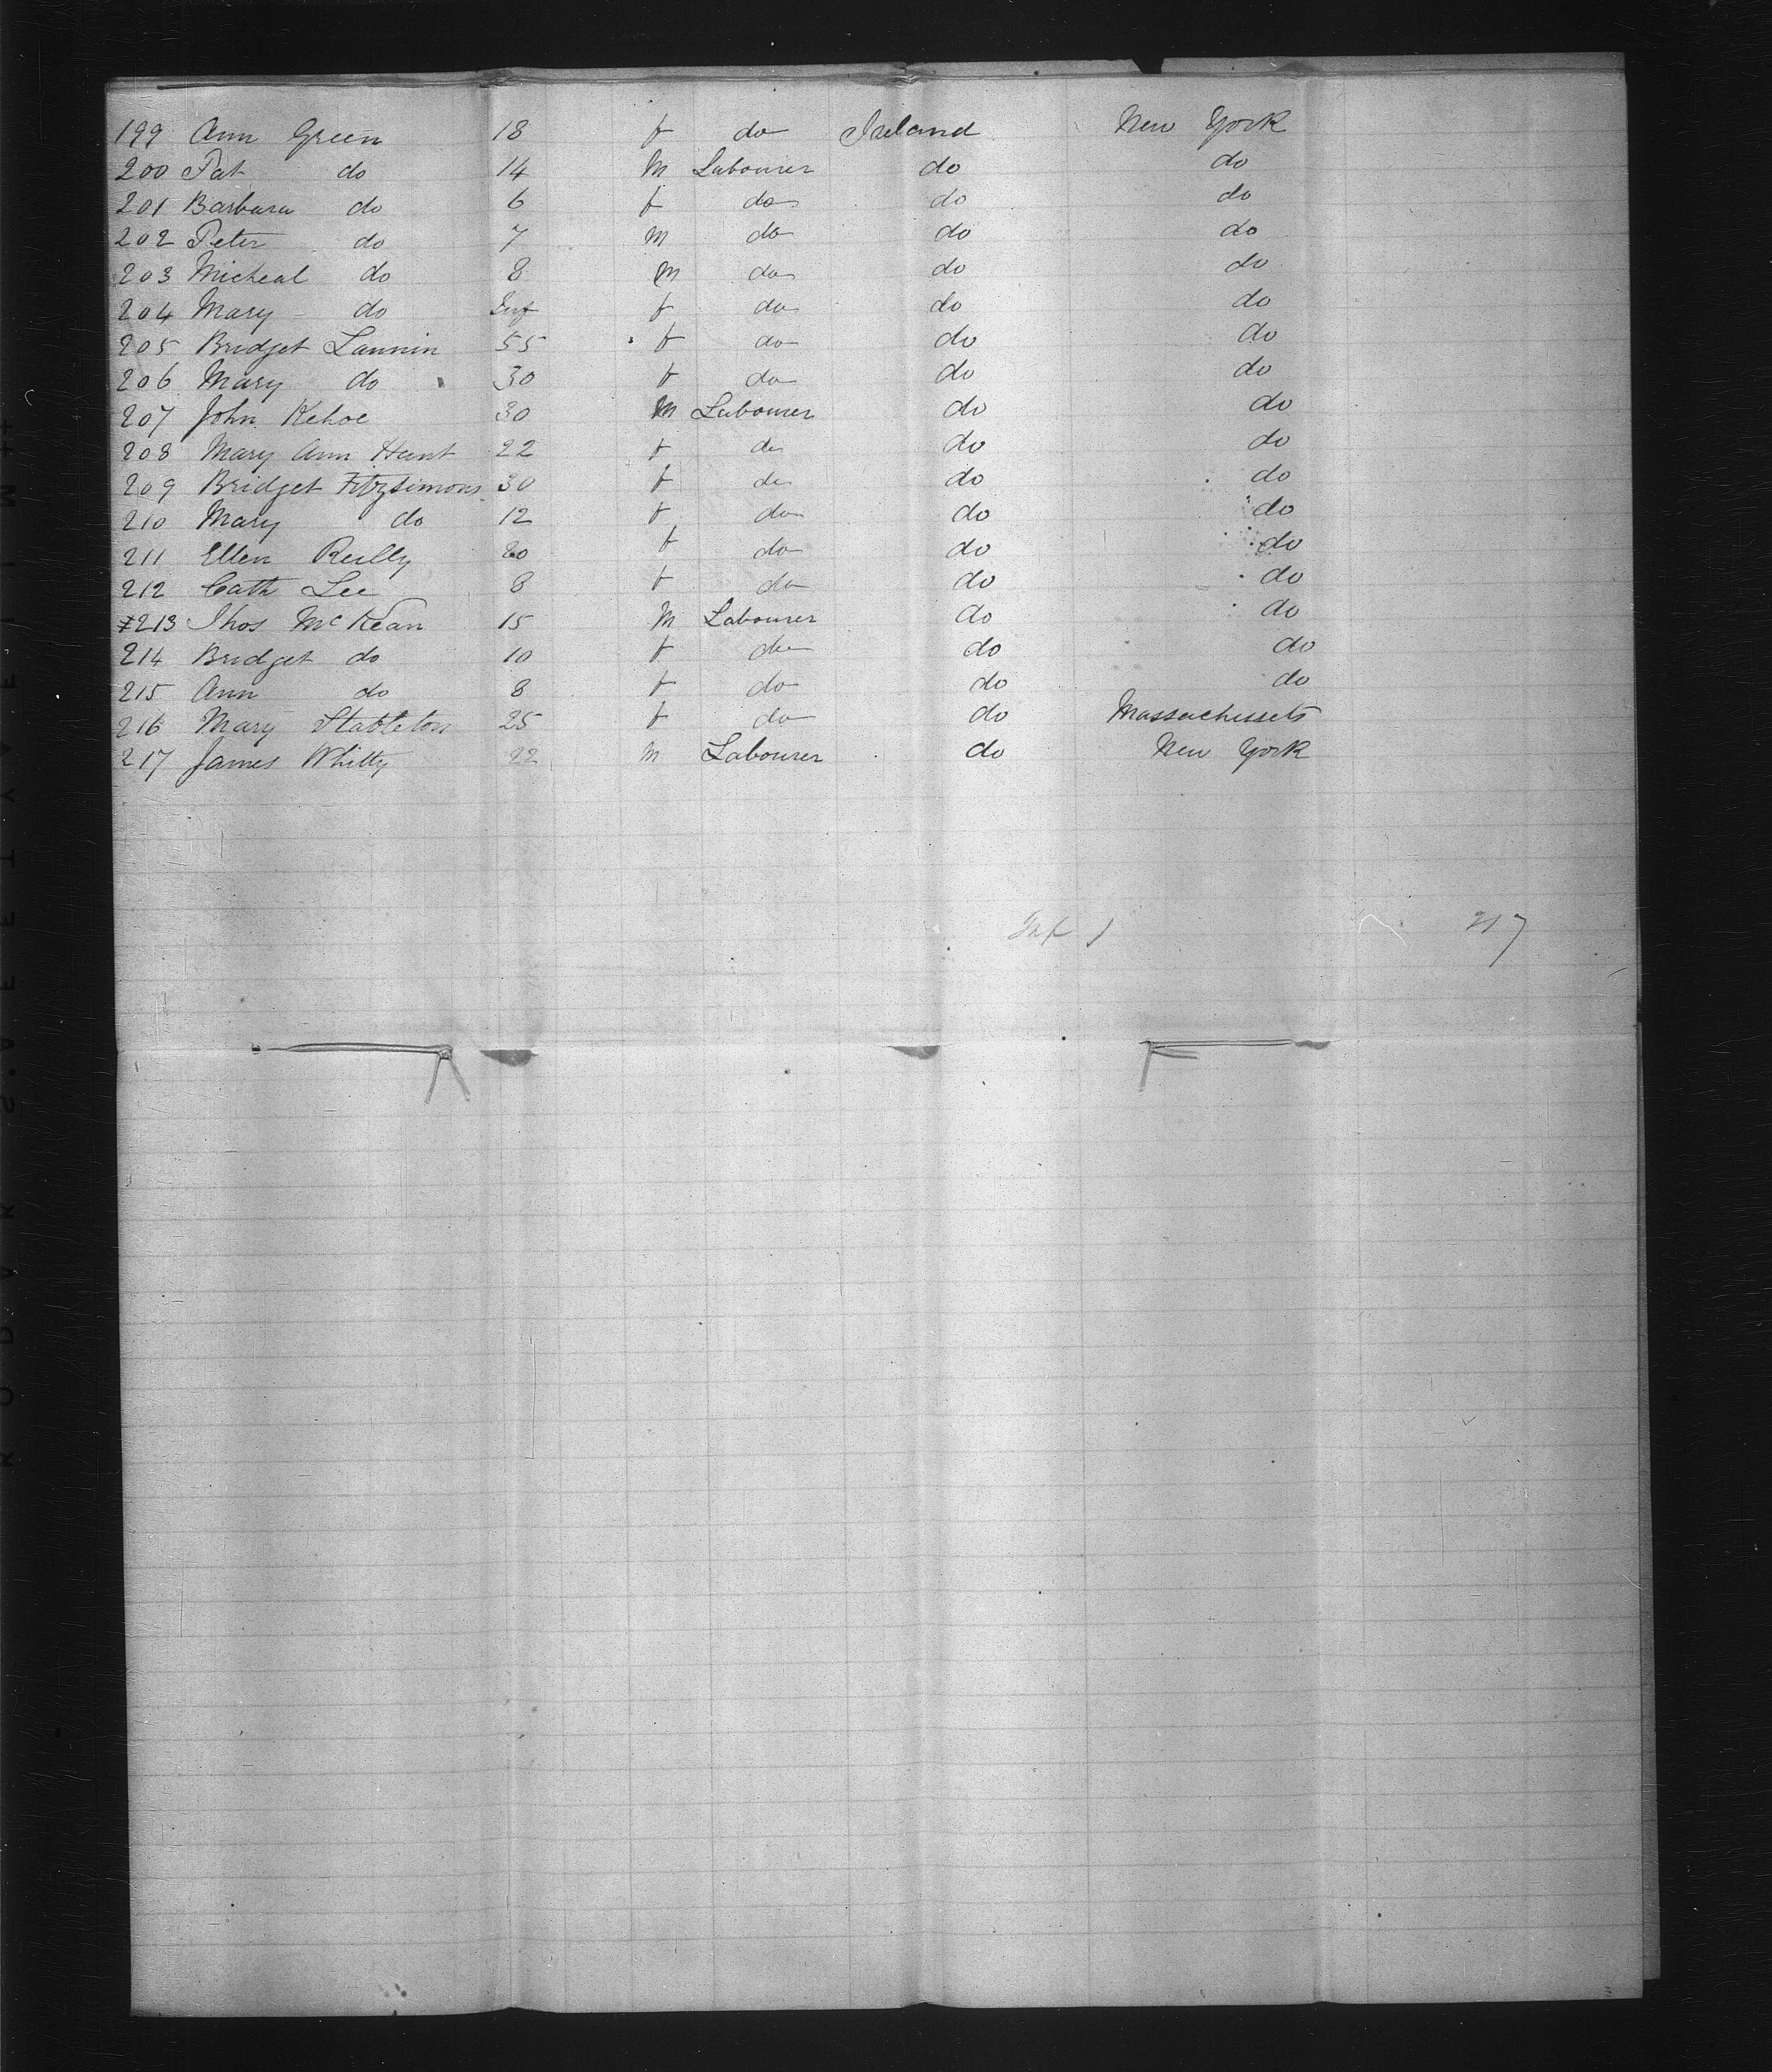 199 Ann Green 18 f do Ireland New York
200 Pat do 14 M Labourer do do
201 Barbara do 6 f do do do
202 Peter do 7 M do do do
203 Micheal do 8 M do do do
204 Mary do Inf f do do do
205 Bridget Lannin 55 f do do do
206 Mary do 30 f do do do
207 John Kehoe 30 M Labourer do do
208 Mary Ann Hunt 22 f do do do
209 Bridget Fitzsimons 30 f do do do
210 Mary do 12 f do do do
211 Ellen Reilly 20 f do do do
212 Cath Lee 8 f do do do
213 Thos McKean 15 M Labourer do do
214 Bridget do 10 f do do do
215 Ann do 8 f do do do
216 Mary Stableton 25 f do do Massachussets
217 James Whitty 22 M Labourer do New York
Inf 1 217